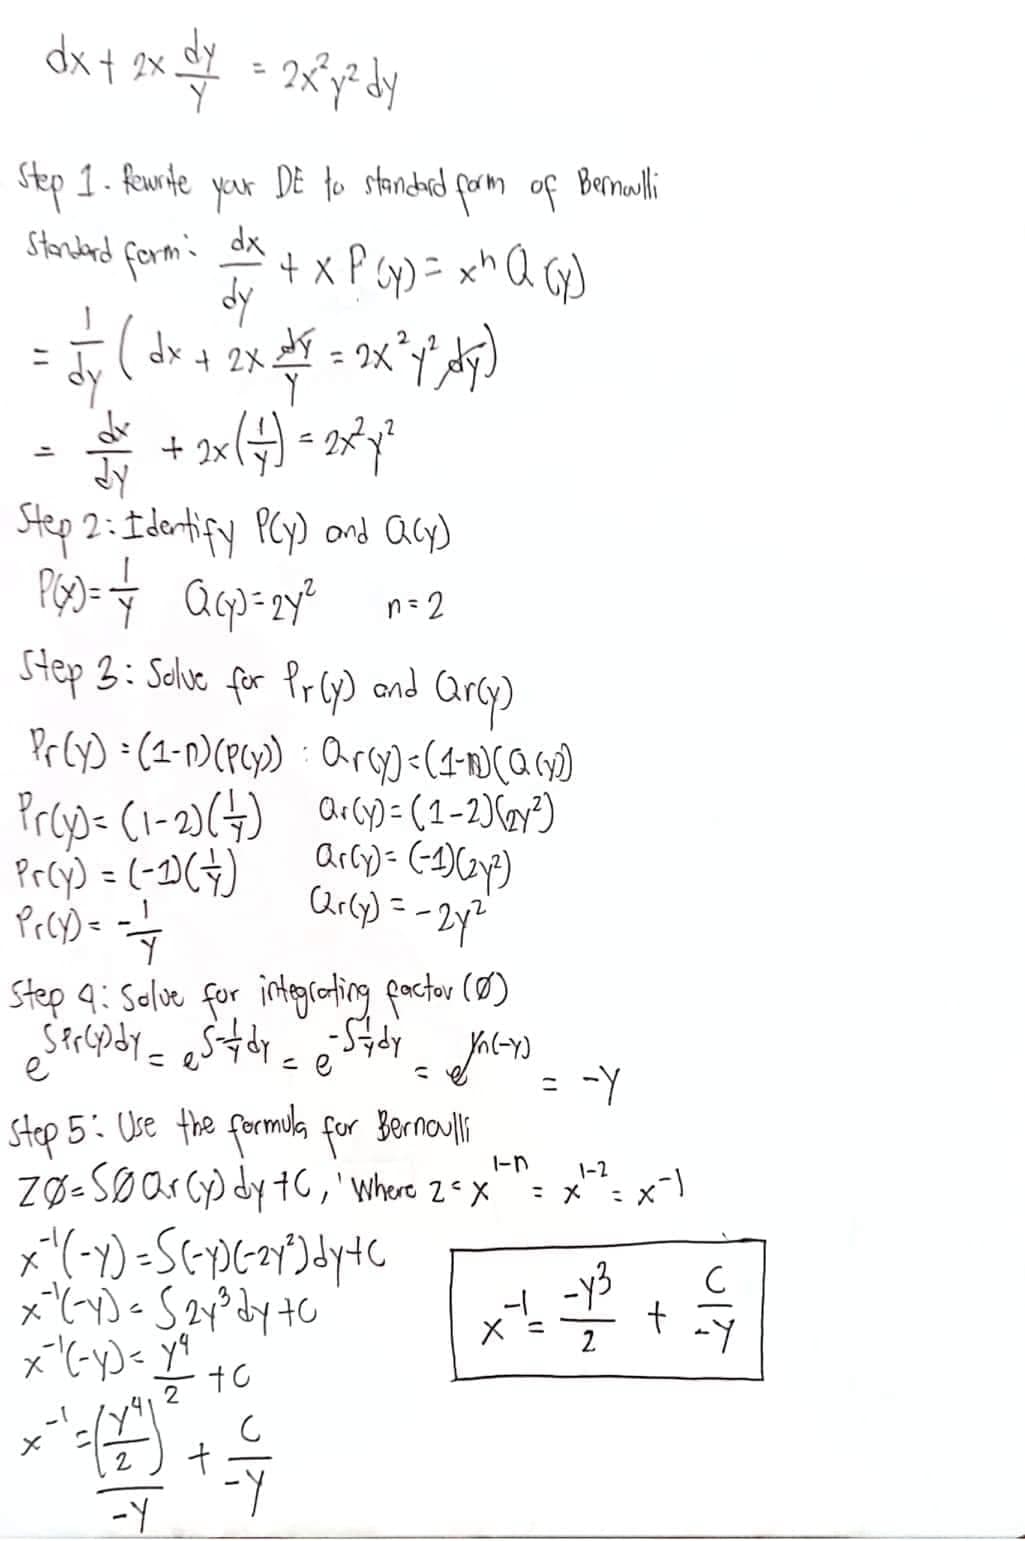 dx + 2x dy/y = 2x²y² dy
Step 1. Rewrite your DE to standard form of Bernoulli
Standard form: dx/dy + x P(y) = xⁿ Q(y)
= 1/dy ( dx + 2x dy/y = 2x²y² dy )
= dx/dy + 2x(1/y) = 2x²y²
Step 2: Identify P(y) and Q(y)
P(y) = 1/y Q(y) = 2y² n = 2
Step 3: Solve for Pr(y) and Qr(y)
Pr(y) = (1-n)(P(y)) : Qr(y) = (1-n)(Q(y))
Pr(y) = (1-2)(1/y) Qr(y) = (1-2)(2y²)
Pr(y) = (-1)(1/y) Qr(y) = (-1)(2y²)
Pr(y) = -1/y Qr(y) = -2y²
Step 4: Solve for integrating factor (Ø)
e^(∫Pr(y)dy) = e^(∫-1/y dy) = e^(-∫1/y dy) = e^(ln(-y)) = -y
Step 5: Use the formula for Bernoulli
ZØ = ∫Ø Qr(y) dy + C, 'Where z = x^(1-n) = x^(1-2) = x^-1
x⁻¹(-y) = ∫(-y)(-2y²)dy + C
x⁻¹(-y) = ∫2y³ dy + C
x⁻¹(-y) = y⁴/2 + C
x⁻¹ = (y⁴/2)/-y + C/-y
x⁻¹ = -y³/2 + C/-y